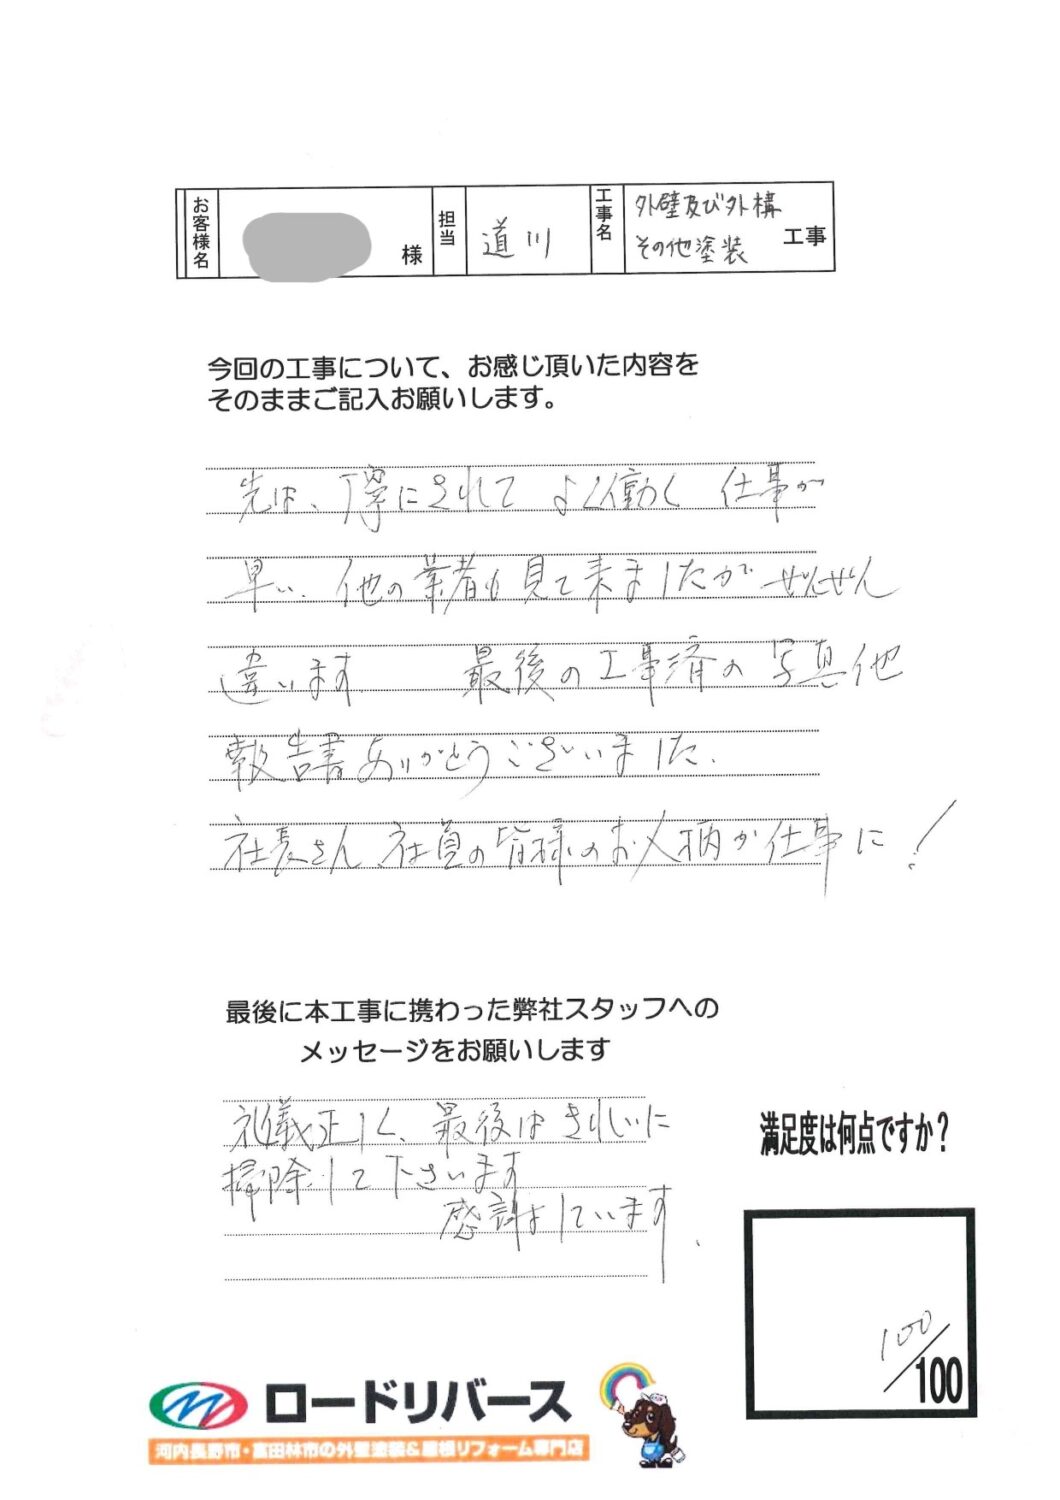 お客様名 様 担当 道川 工事名 外壁及び外構
その他塗装 工事
今回の工事について、お感じ頂いた内容を
そのままご記入お願いします。
先は、丁寧にされて よく働く 仕事が
早い、他の業者も見て来ましたが ぜんぜん
違います 最後の工事済の写真他
報告書ありがとうございました.
社長さん 社員の皆様のお人柄が仕事に！
最後に本工事に携わった弊社スタッフへの
メッセージをお願いします
礼儀正しく、最後はきれいに
掃除して下さいます
感謝しています.
満足度は何点ですか？
100/100
ロードリバース
河内長野市・富田林市の外壁塗装&屋根リフォーム専門店